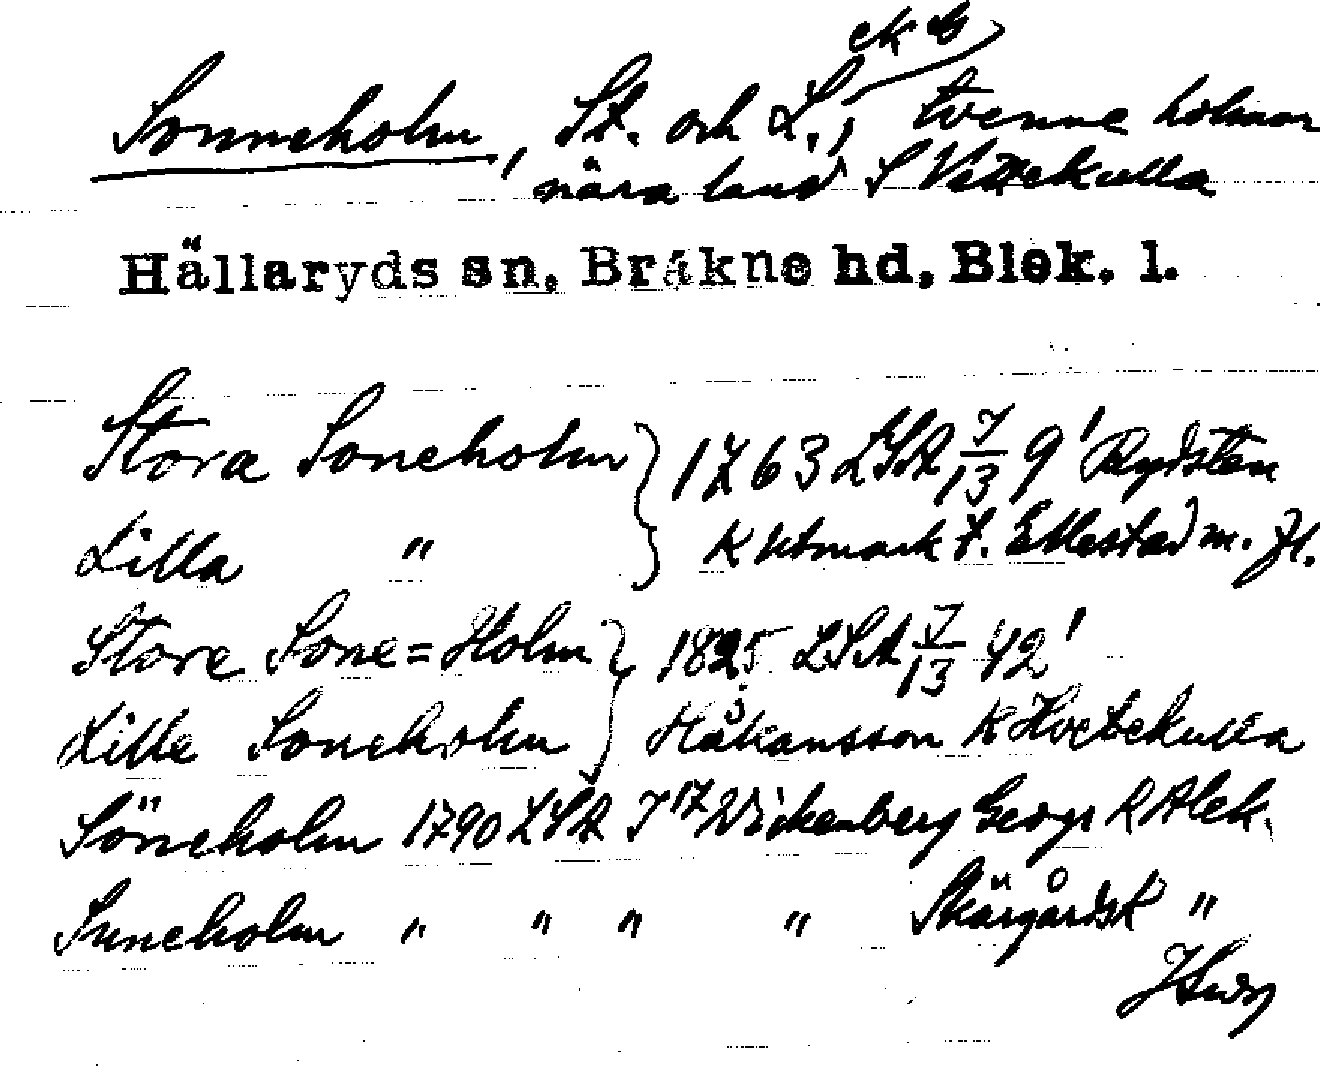 ek b
Sonneholm, St. och L., tvenne holmar
nära land S Vettekulla
Hällaryds sn, Bräkne hd, Blek. l.
Stora Soneholm } 1763 LSA 7/13 9' Rydsten
Lilla " K Utmark t. Ellestad m. fl.
Store Sone=Holm } 1825 LSA 7/13 42'
Lille Soneholm Håkansson K Hvetekulla
Söneholm 1790 LSA J 17 Wickenberg Geogr K Blek.
Suneholm " " " " SkärgårdsK "